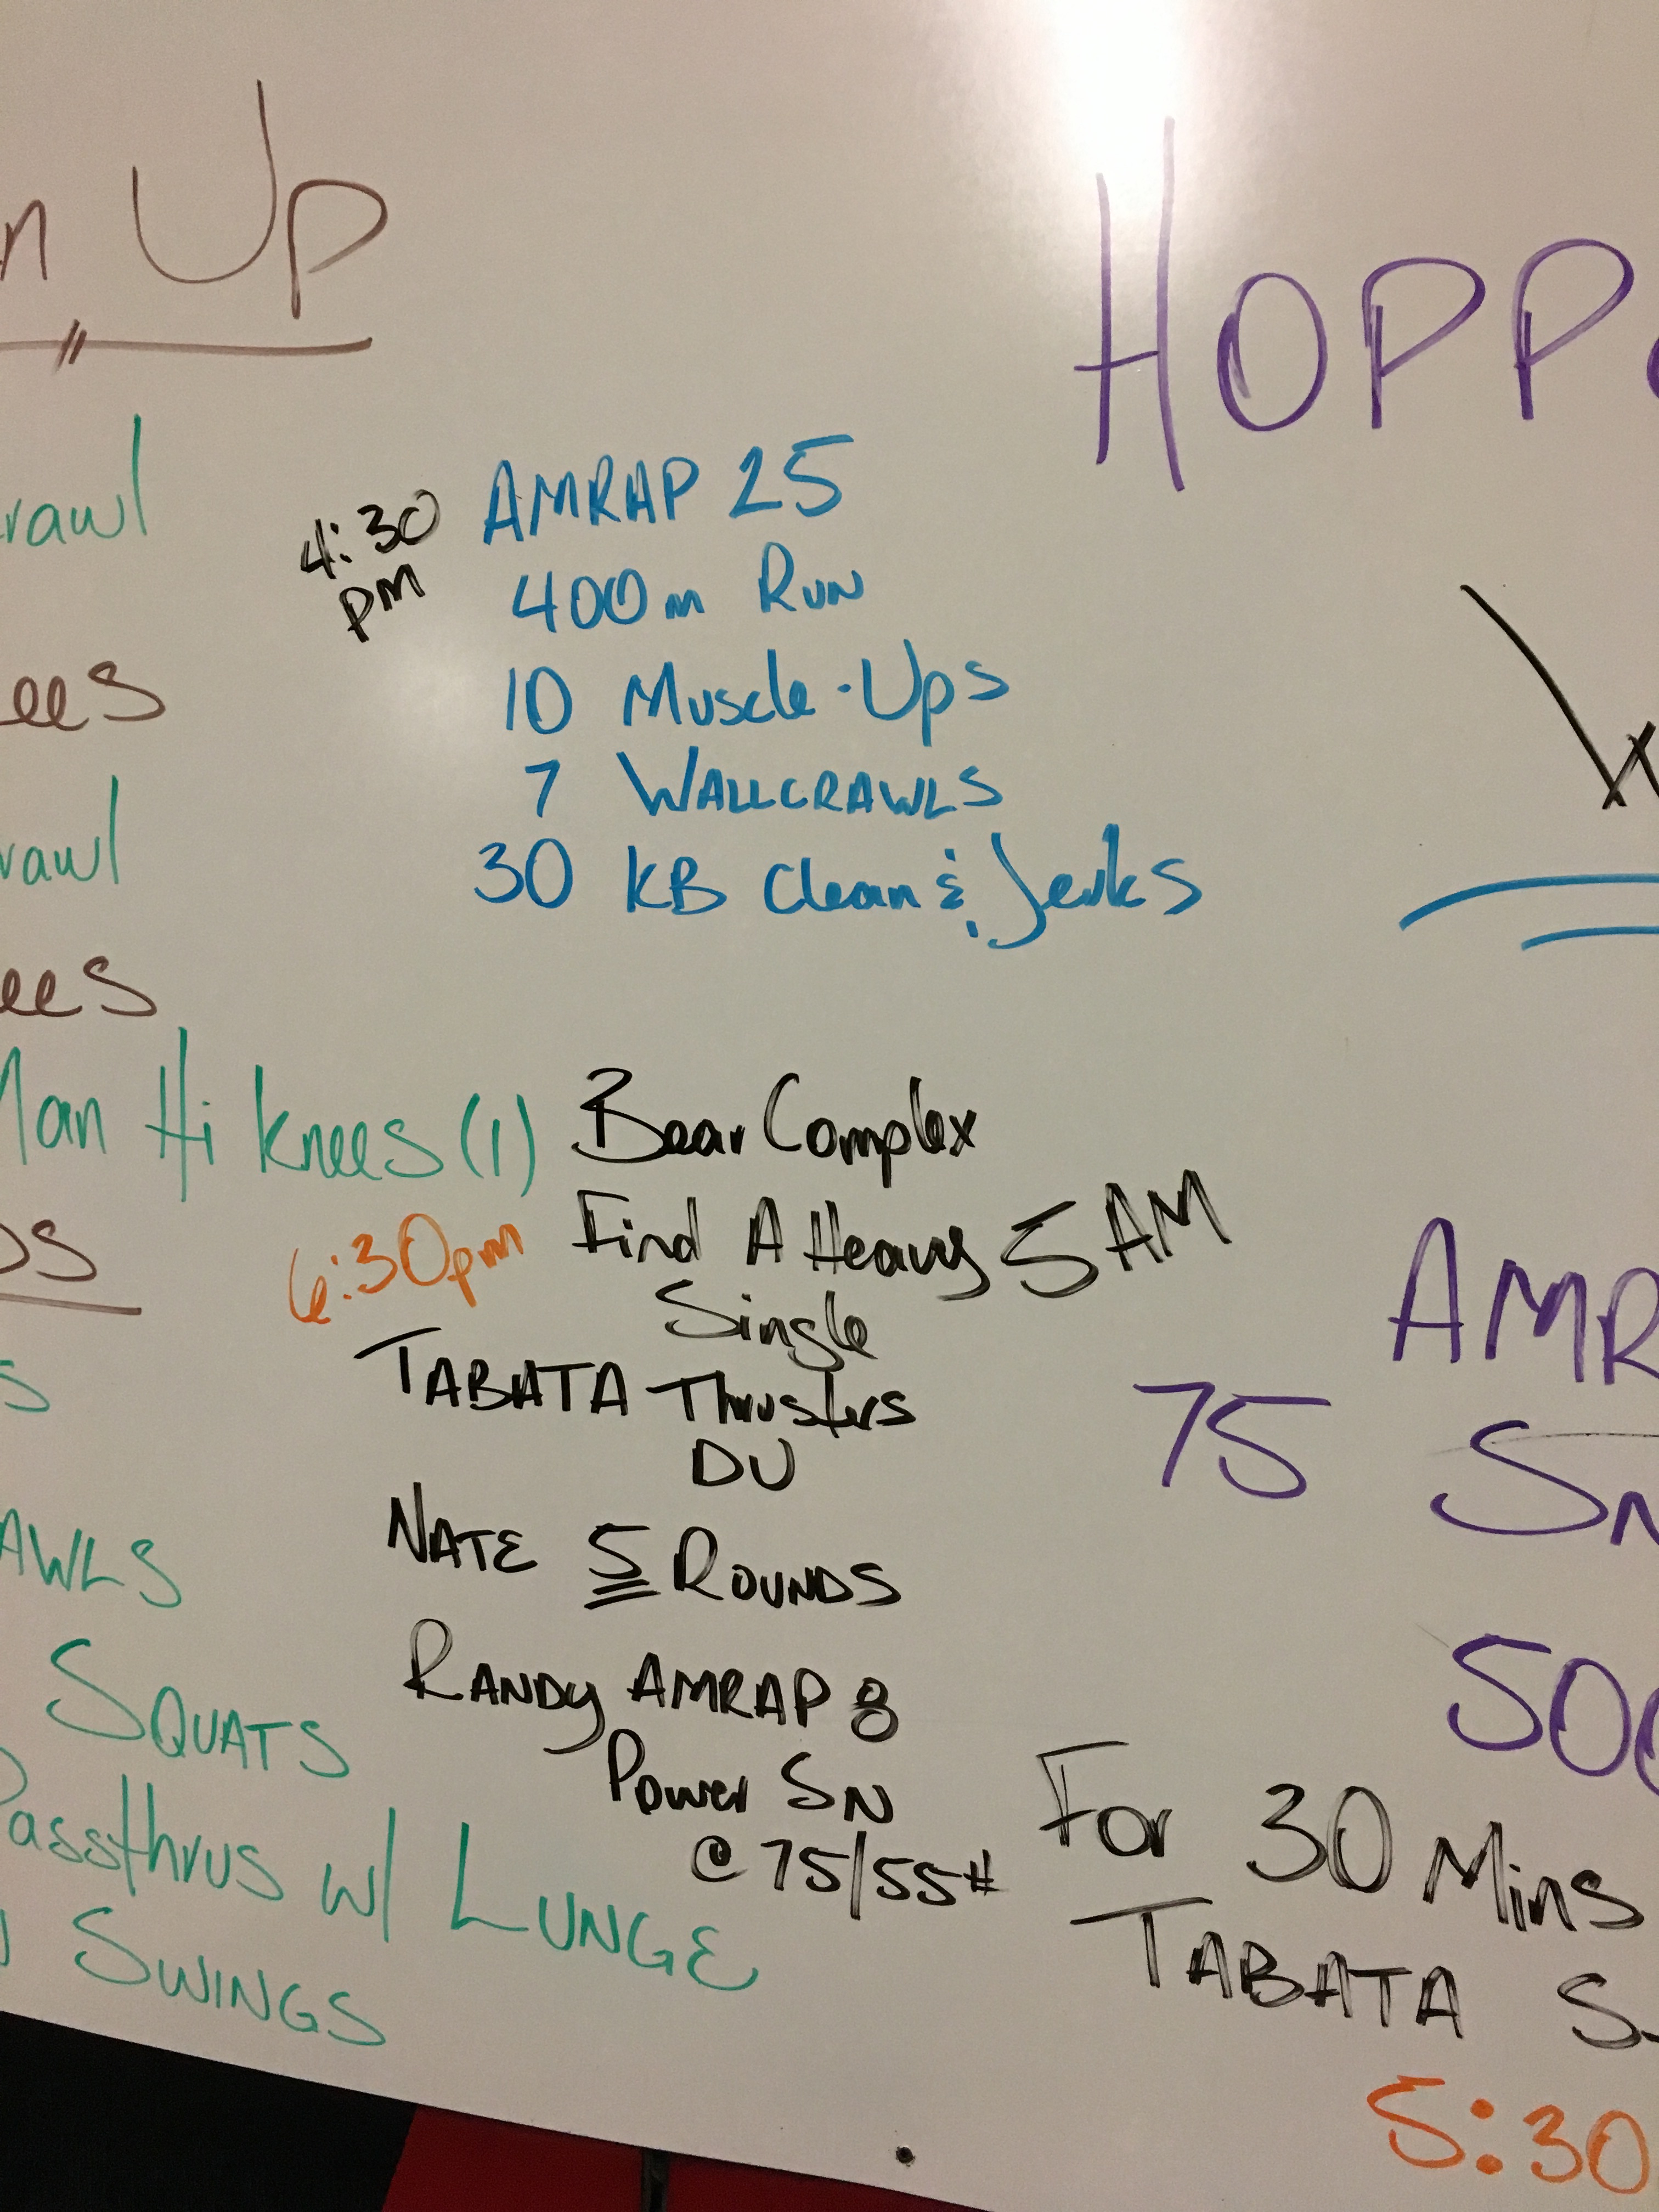 Up
HOPP
4:30
PM
AMRAP 25
400m Run
10 Muscle-Ups
7 WALLCRAWLS
30 KB Clean & Jerks
rawl
ees
rawl
ees
Man Hi Knees (1)
Bear Complex
Find A Heavy 5 AM
Single
6:30pm
TABATA Thrusters
DU
NATE 5 ROUNDS
RANDY AMRAP 8
Power SN
@ 75/55#
AWLS
SQUATS
Passthrus w/ LUNGE
SWINGS
AMR
75 SN
50
For 30 Mins
TABATA S
5:30